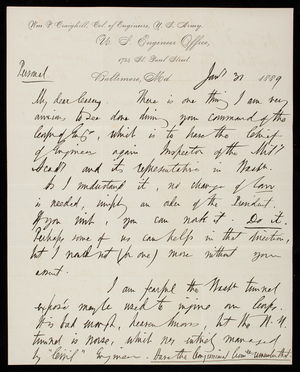 Wm P. Craighill, Col. of Engineers, U. S. Army.
U. S. Engineer Office,
1724 St. Paul Street.
Personal
Baltimore, Md. Jan'y 31 1889
My dear Casey. There is one thing I am very
anxious to see done during your command of the
Corps of Eng'rs, which is to have the Chief
of Engineers again Inspector of the Mil'y
Acad'y and its representative in Wash'n.
As I understand it, no change of law
is needed, simply an order of the President.
If you wish, you can make it. Do it.
Perhaps some of us can help in that direction,
but I would not (for one) move without your
assent.
I am fearful the Wash'n tunnel
exposé may be used to injure our Corps.
It is bad enough, heaven knows, but the N. Y.
tunnel is worse, which was initially managed
by "Civil" Engineers. Have the Congressional Com'ee remember that.